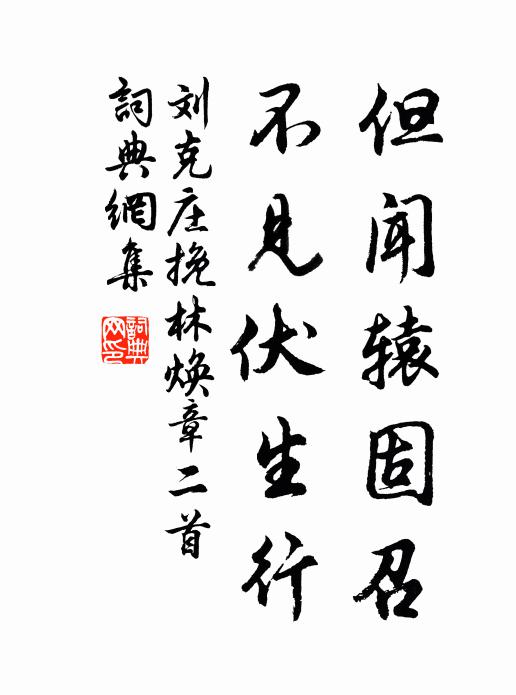 但闻辕固召
不见伏生行
刘克庄挽林焕章二首
詞典網集
詞典
网印